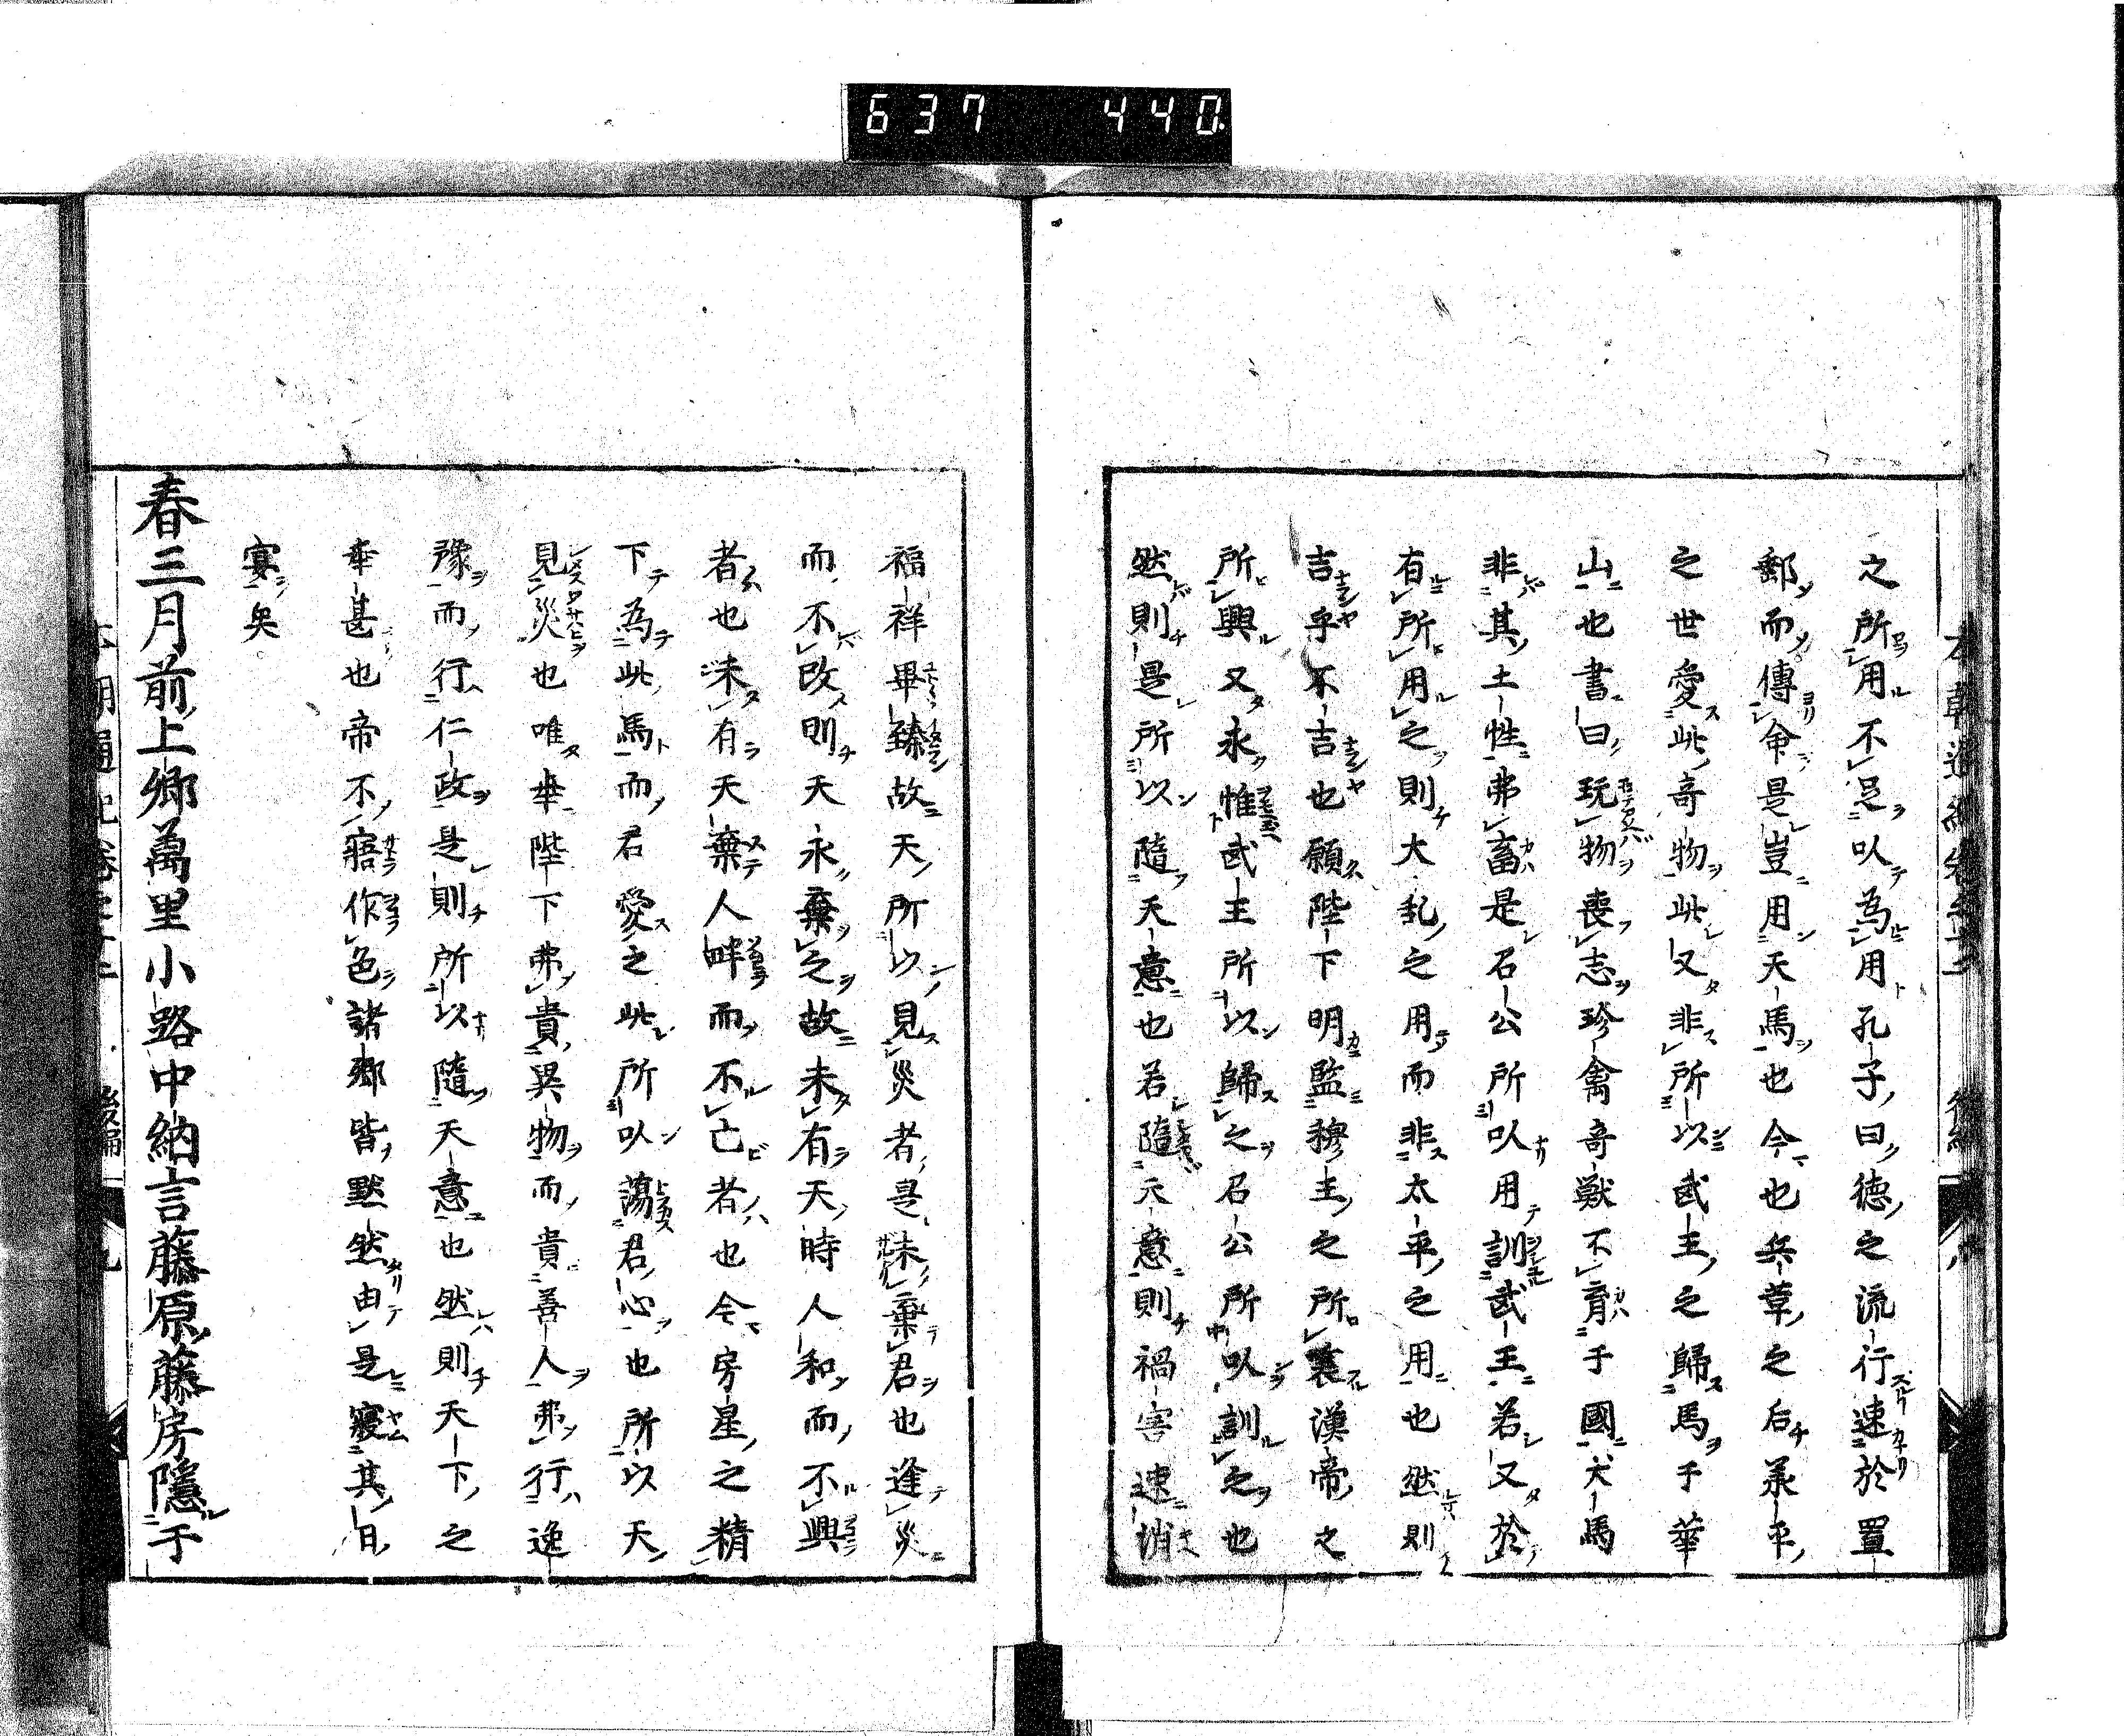 637 440
之所用不足以為用孔子曰徳之流行速於置
郵而傳命是豈用天馬也今也兵革之后承平
之世愛此奇物此又非所以武王之歸馬于華
山也書曰玩物喪志珍禽奇獣不育于國犬馬
非其土性弗畜是召公所以用訓武王若又於
有所用之則大乱之用而非太平之用也然則
吉乎不吉也願陛下明監穆王之所衰漢帝之
所興又永惟武王所以歸之召公所以訓之也
然則是所以隨天意也若隨天意則禍害速消
福祥畢臻故天所以見災者是未棄君也逢災
而不改則天永棄之故未有天時人和而不興
者也未有天棄人畔而不亡者也今房星之精
下為此馬而君愛之此所以蕩君心也所以天
見災也唯幸陛下弗貴異物而貴善人弗行逸
豫而行仁政是則所以隨天意也然則天下之
幸甚也帝不寤作色諸卿皆黙然由是寢其日
宴矣
春三月前上卿萬里小路中納言藤原藤房隱于